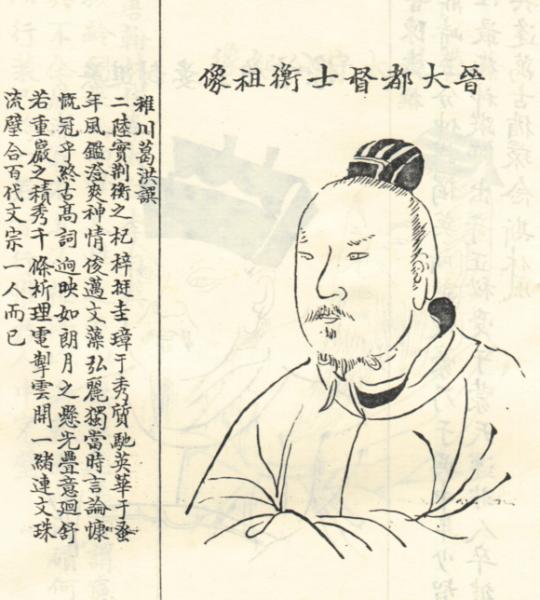 晉大都督士衡祖像
稚川葛洪譔
二陸實荊衡之杞梓挺圭璋于秀質馳英華于蚤
年風鑑澄爽神情俊邁文藻弘麗獨當時言論慷
慨冠乎終古高詞迥映如朗月之懸光疊意迴舒
若重巖之積秀千條析理電掣雲開一緒連文珠
流璧合百代文宗一人而已